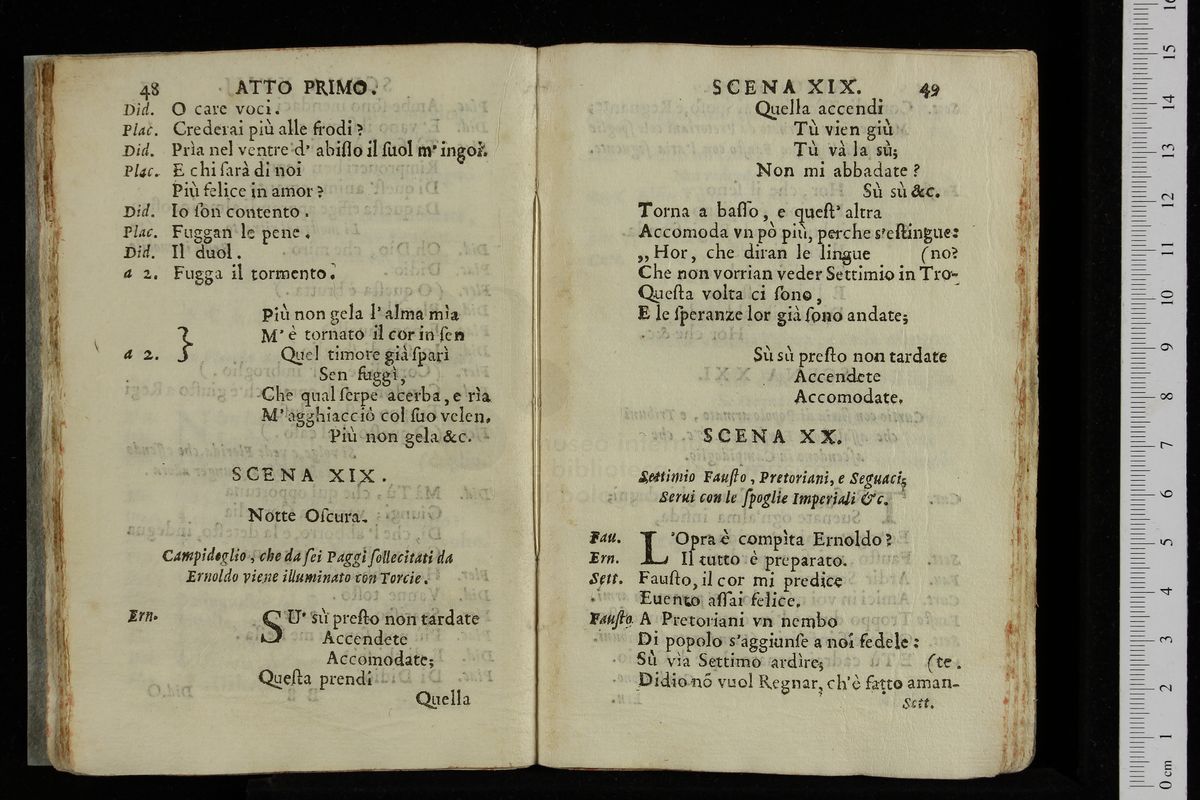 48 ATTO PRIMO.
Did. O care voci.
Plac. Crederai più alle frodi?
Did. Prìa nel ventre d' abiſſo il ſuol m' ingoi.
Plac. E chi ſarà di noi
Più felice in amor?
Did. Io ſon contento.
Plac. Fuggan le pene.
Did. Il duol.
a 2. Fugga il tormento.
Più non gela l' alma mìa
M' è tornato il cor in ſen
a 2. } Quel timore già ſparì
Sen fuggì,
Che qual ſerpe acerba, e rìa
M' agghiacciò col ſuo velen.
Più non gela &c.
SCENA XIX.
Notte Oſcura.
Campidoglio, che da ſei Paggi ſollecitati da
Ernoldo viene illuminato con Torcie.
Ern. SU' sù preſto non tardate
Accendete
Accomodate;
Queſta prendi
Quella
SCENA XIX. 49
Quella accendi
Tù vien giù
Tù và la sù;
Non mi abbadate?
Sù sù &c.
Torna a baſſo, e queſt' altra
Accomoda vn pò più, perche s'eſtingue:
„ Hor, che diran le lingue (no?
Che non vorrian veder Settimio in Tro-
Queſta volta ci ſono,
E le ſperanze lor già ſono andate;
Sù sù preſto non tardate
Accendete
Accomodate.
SCENA XX.
Settimio Fauſto, Pretoriani, e Seguaci;
Serui con le ſpoglie Imperiali &c.
Fau. L'Opra è compìta Ernoldo?
Ern. Il tutto è preparato.
Sett. Fauſto, il cor mi predice
Euento aſſai felice.
Fauſto. A Pretoriani vn nembo
Di popolo s'aggiunſe a noi fedele:
Sù vìa Settimo ardìre; (te.
Didio nõ vuol Regnar, ch'è fatto aman-
Sett.
0 cm 1 2 3 4 5 6 7 8 9 10 11 12 13 14 15 16